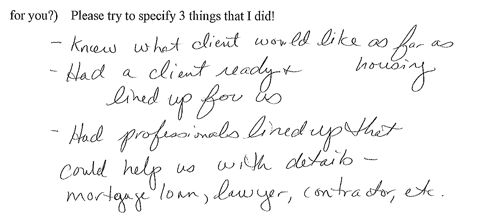 for you?) Please try to specify 3 things that I did!
- Knew what client would like as far as
housing
- Had a client ready +
lined up for us
- Had professionals lined up that
could help us with details -
mortgage loan, lawyer, contractor, etc.